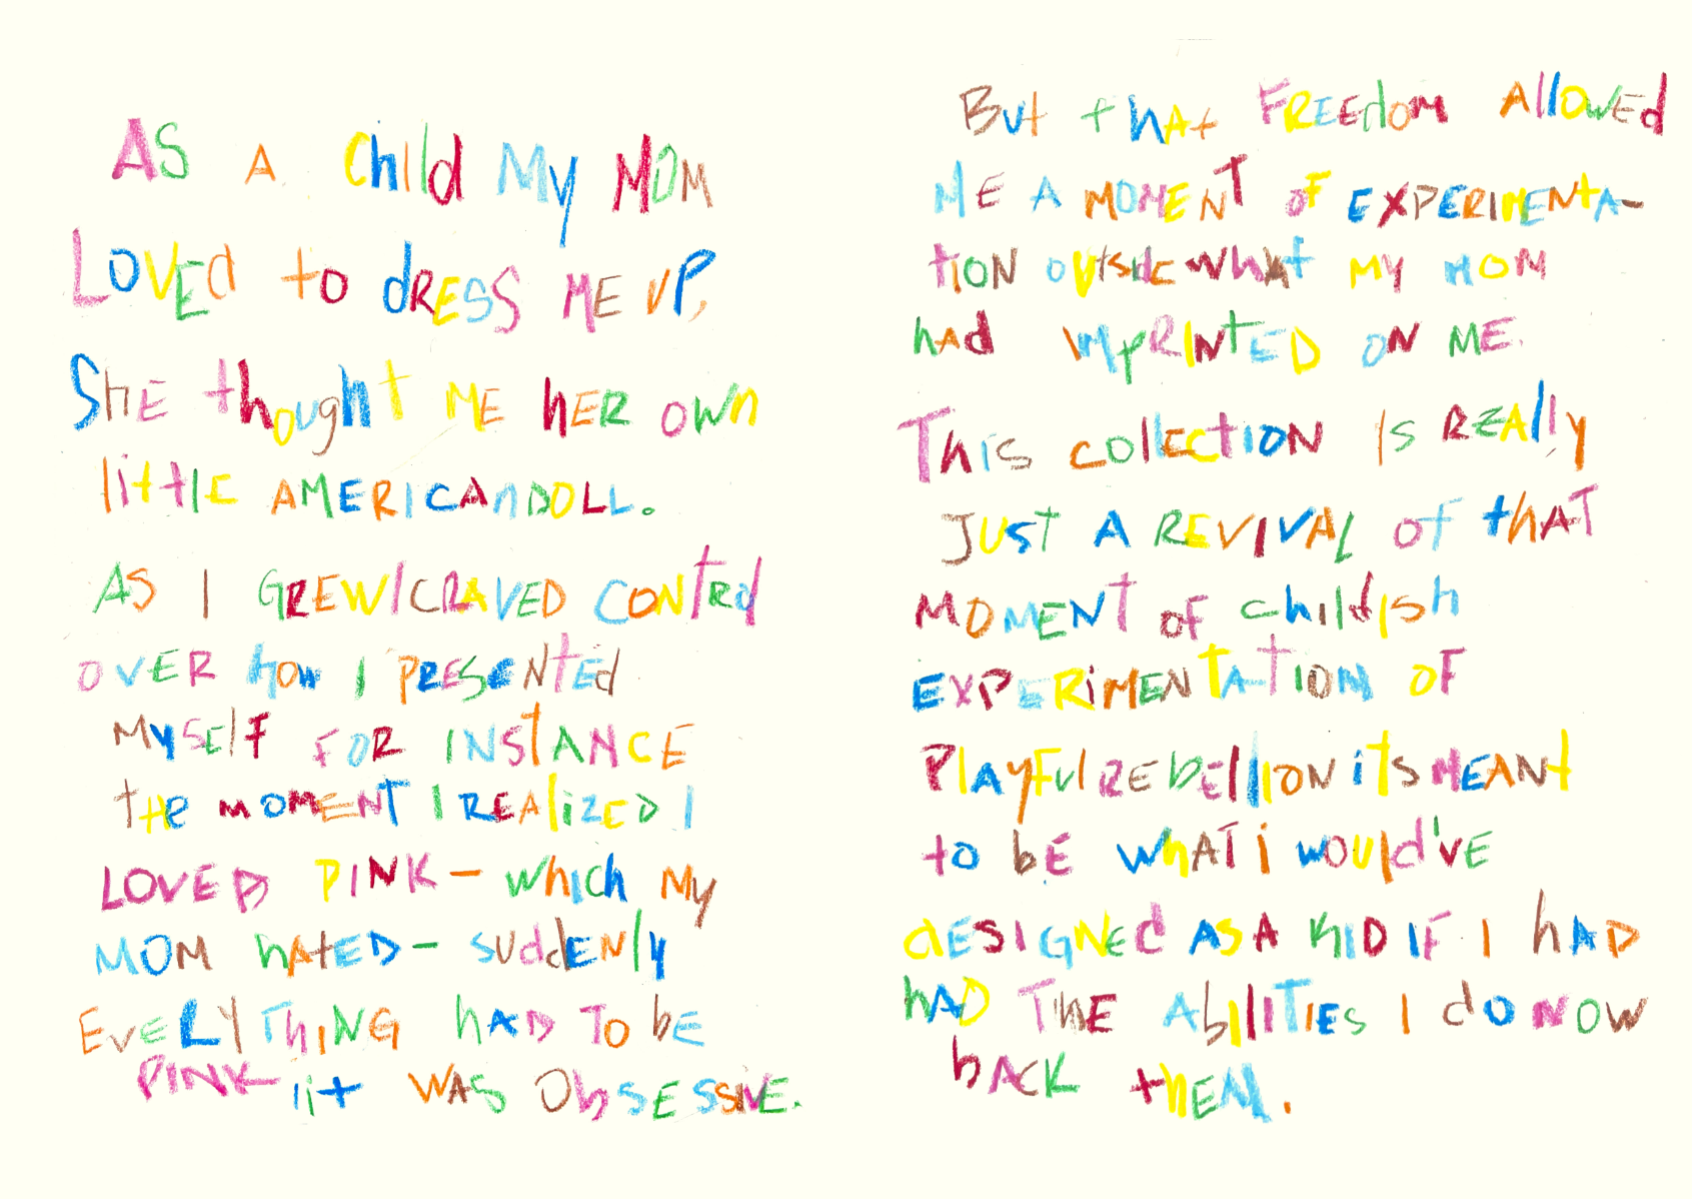 AS A Child My MOM
LOVEd to dRESS ME UP,
SHE thought ME HER OWN
little AMERICANDOLL.
AS I GREW I CRAVED CONTROl
OVER how I PRESENTEd
MySElf FOR INSTANCE
the MOMENT I REAlIZED I
LOVED PINK - which My
MOM hAtED - SUddENly
EVERYThING hAD TO bE
PINK iit WAS ObSESSIVE.
But thAt FREEdOM AllOWEd
ME A MOMENT OF EXPERIMENTA-
tION OUtsidE whAt MY MOM
hAd IMPRINtED ON ME.
This COllECTION Is REAlly
JUST A REVIVAL Of thAT
MOMENT OF childish
EXPERIMENTATION OF
PlAyFul REbEllION itS MEANt
to bE whAT i would'vE
dESIGNEd AS A KID IF I hAD
hAD THE AbIlITIES I do NOW
bACK thEN.